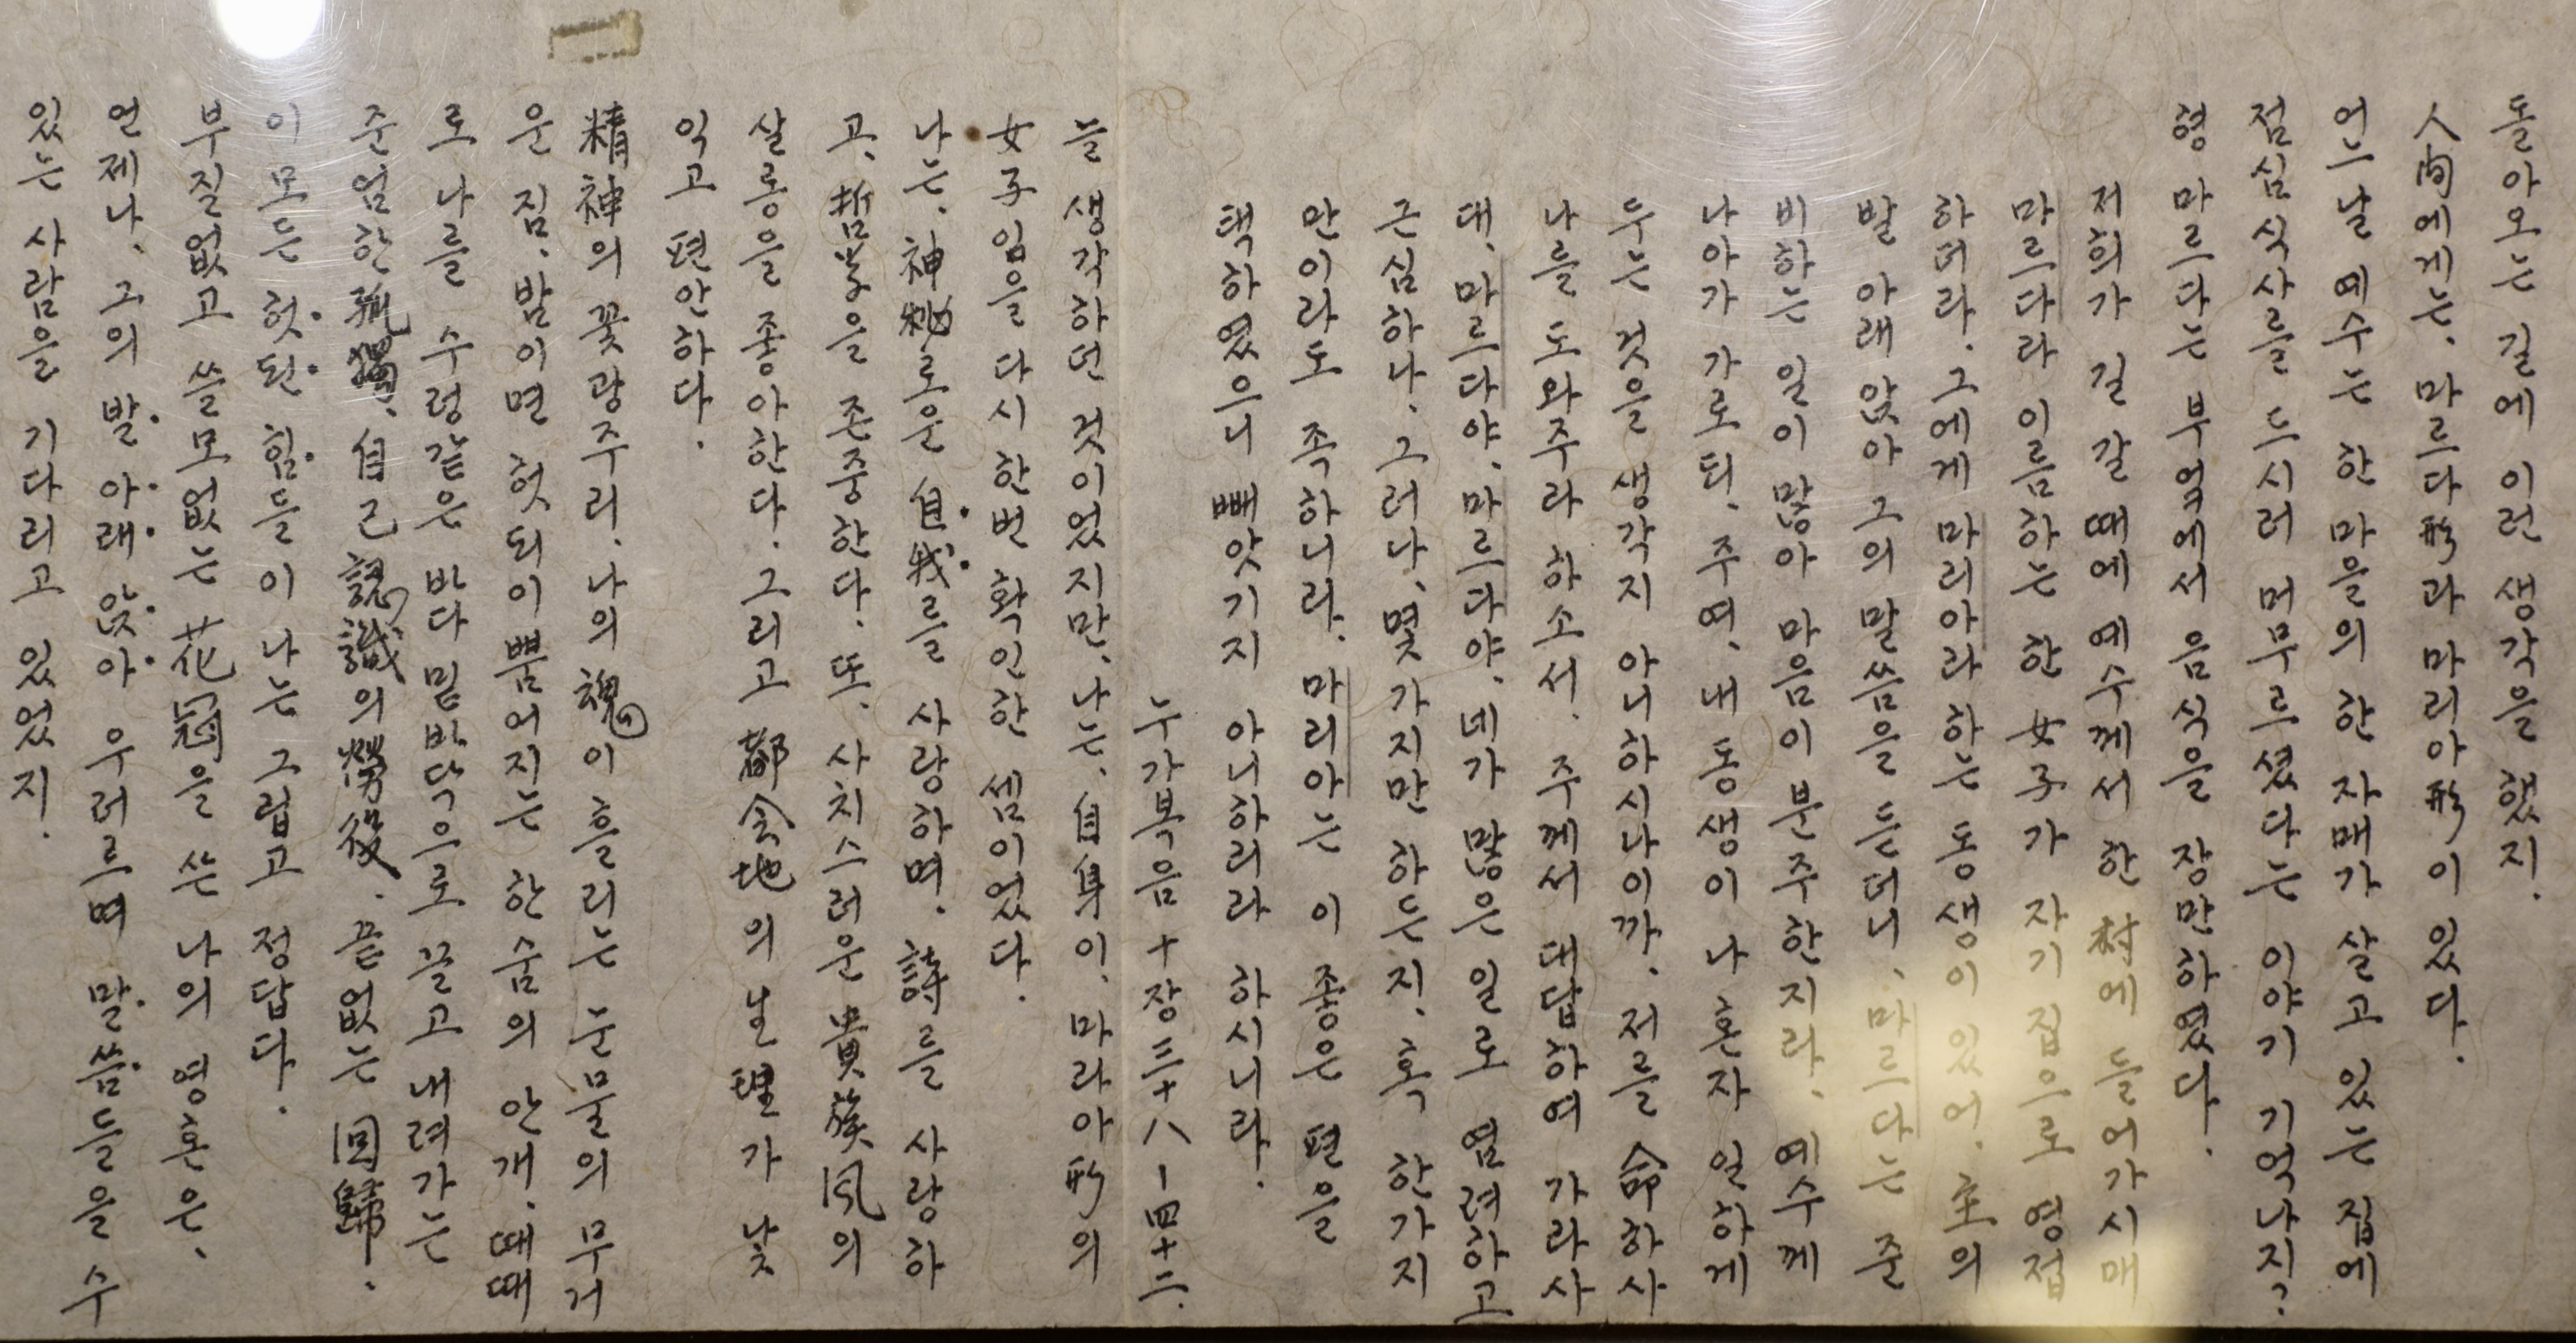 돌아오는 길에 이런 생각을 했지.
人間에게는. 마르다形과 마리아形이 있다.
어느날 예수는 한 마을의 한 자매가 살고 있는 집에
점심식사를 드시러 머무르셨다는 이야기 기억나지?
형 마르다는 부엌에서 음식을 장만하였다.
저희가 길 갈 때에 예수께서 한 村에 들어가시매
마르다라 이름하는 한 女子가 자기 집으로 영접
하더라. 그에게 마리아라 하는 동생이 있어. 主의
발 아래 앉아 그의 말씀을 듣더니, 마르다는 준
비하는 일이 많아 마음이 분주한지라. 예수께
나아가 가로되. 주여. 내 동생이 나 혼자 일하게
두는 것을 생각지 아니하시나이까. 저를 命하사
나를 도와주라 하소서. 주께서 대답하여 가라사
대. 마르다야. 마르다야. 네가 많은 일로 염려하고
근심하나. 그러나, 몇 가지만 하든지. 혹 한가지
만이라도 족하니라. 마리아는 이 좋은 편을
택하였으니 빼앗기지 아니하리라 하시니라.
누가복음 十장 三十八 ― 四十二.
늘 생각하던 것이었지만, 나는. 自身이. 마리아形의
女子임을 다시 한번 확인한 셈이었다.
나는. 神秘로운 自我를 사랑하며. 詩를 사랑하
고. 哲學을 존중한다. 또. 사치스러운 貴族風의
살롱을 좋아한다. 그리고 都会地의 生理가 낯
익고 편안하다.
精神의 꽃광주리. 나의 魂이 흘리는 눈물의 무거
운 짐. 밤이면 헛되이 뿜어지는 한숨의 안개. 때때
로 나를 수렁같은 바다 밑바닥으로 끌고 내려가는
준엄한 孤獨. 自己認識의 勞役. 끝없는 回歸.
이 모든 헛된 힘들이 나는 그립고 정답다.
부질없고 쓸모없는 花冠을 쓴 나의 영혼은.
언제나. 그의 발 아래 앉아 우러르며 말씀들을 수
있는 사람을 기다리고 있었지.